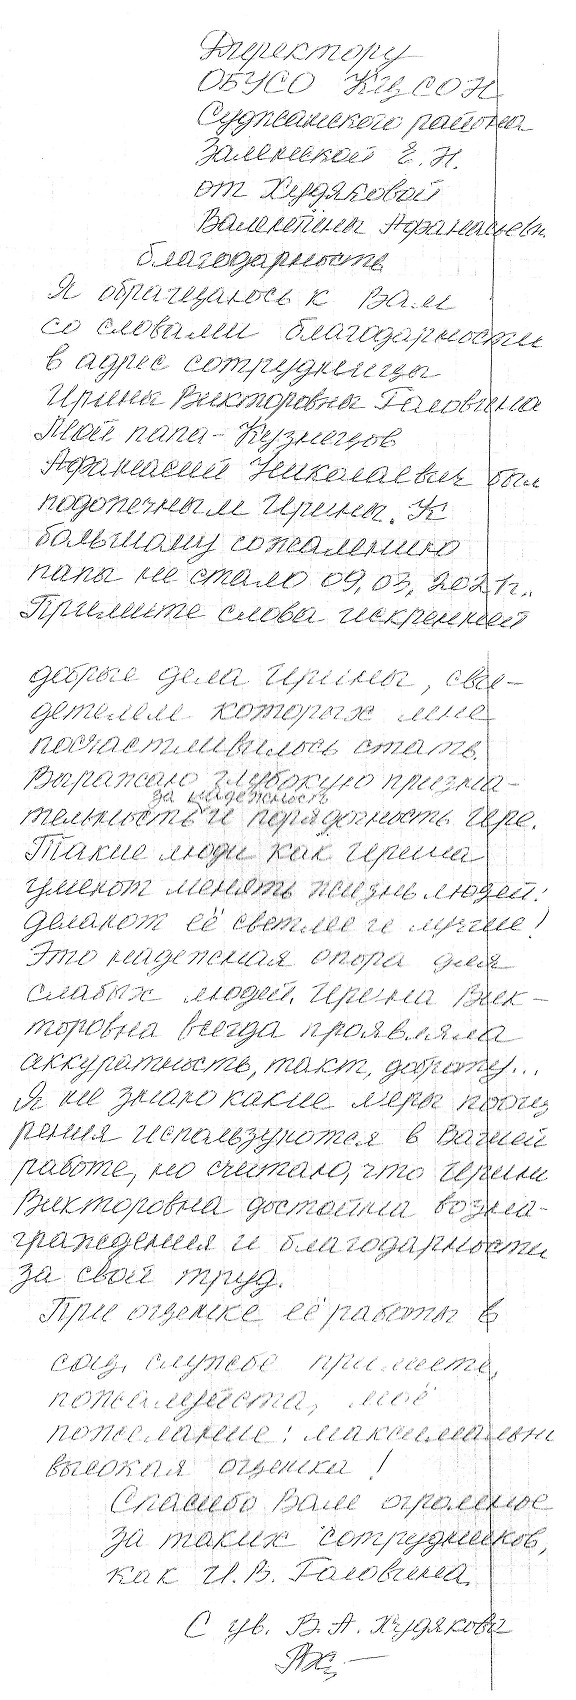 Директору
ОБУСО КЦСОН
Суджанского района
Заленской Е. Н.
от Худяковой
Валентины Афанасьевн
благодарность
Я обращаюсь к Вам
со словами благодарности
в адрес сотрудницы
Ирины Викторовны Головина
Мой папа - Кузнецов
Афанасий Николаевич был
подопечным Ирины. К
большому сожалению
папы не стало 09.03.2021г..
Примите слова искренней
добрые дела Ирины, сви-
детелем которых мне
посчастливилось стать.
Выражаю глубокую призна-
за надежность
тельность и порядочность Ире.
Такие люди как Ирина
умеют менять жизнь людей:
делают её светлее и лучше!
Это надежная опора для
слабых людей. Ирина Вик-
торовна всегда проявляла
аккуратность, такт, доброту...
Я не знаю какие меры поощ
рения используются в Вашей
работе, но считаю, что Ирина
Викторовна достойна возна-
граждения и благодарности
за свой труд.
При оценке её работы в
соц. службе примите,
пожалуйста, моё
пожелание: максимальн
высокая оценка!
Спасибо Вам огромное
за таких сотрудников,
как И.В. Головина.
С ув. В.А. Худякова